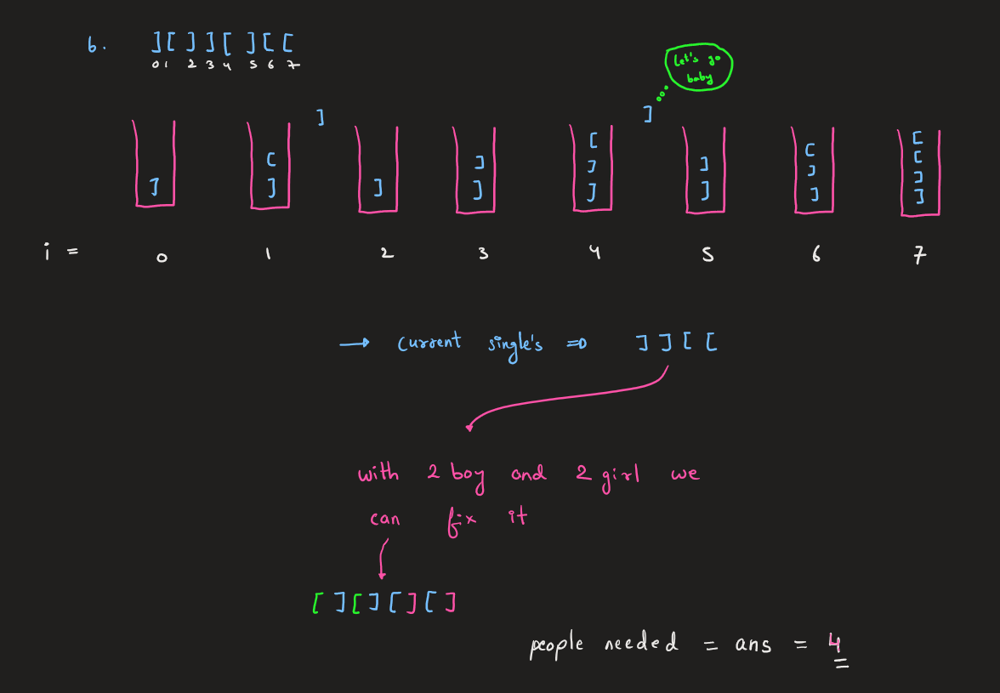 6. ] [ ] ] [ ] [ [
0 1 2 3 4 5 6 7
Let's go
baby
] ]
[ [
[ ] ] [ ]
[ ] ] ] [ ]
] ] ] ] ] ] ] ]
i = 0 1 2 3 4 5 6 7
→ current single's ⇒ ] ] [ [
with 2 boy and 2 girl we
can fix it
[ ] [ ] [ ] [ ]
people needed = ans = 4